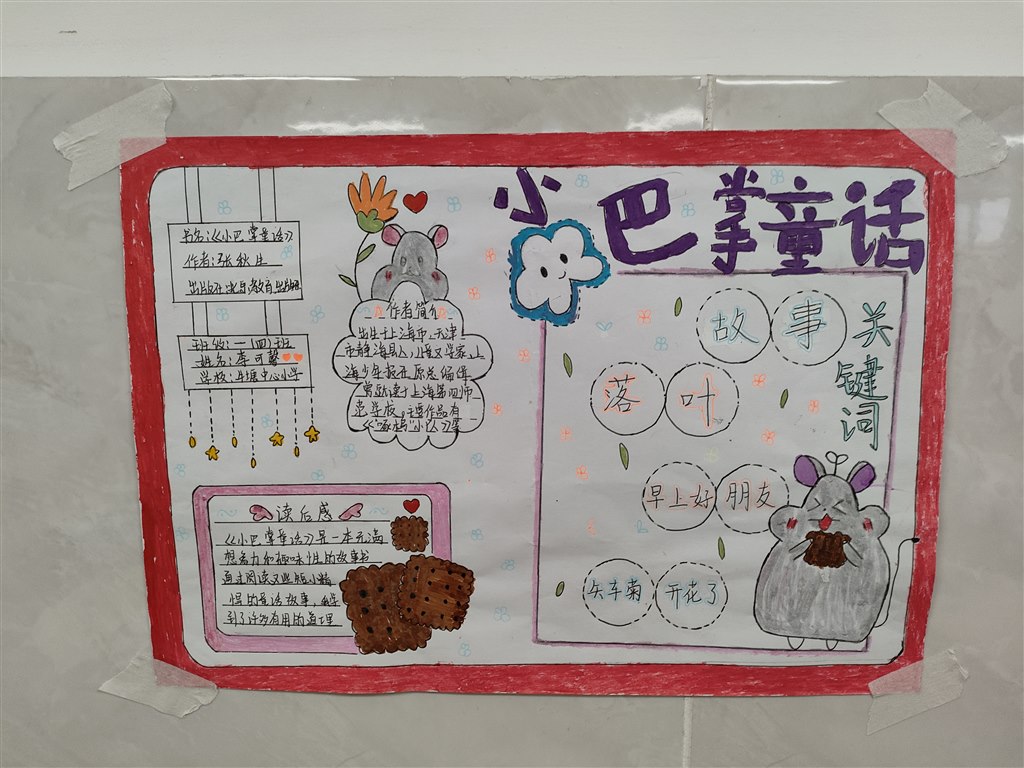 小巴掌童话
书名:《小巴掌童话》
作者:张秋生
班级:一(四)班
姓名:李可馨
学校:中心小学
作者简介
出生于上海市,天津
市静海县人,儿童文学家,上
海少年报社原总编辑
曾就读于上海第四师
范学校,主要作品有
读后感
《小巴掌童话》是一本充满
想象力和趣味性的故事书
通过阅读这些短小精
悍的童话故事,
到了许多有用的道理
关键词
故事
落叶
早上好 朋友
矢车菊 开花了